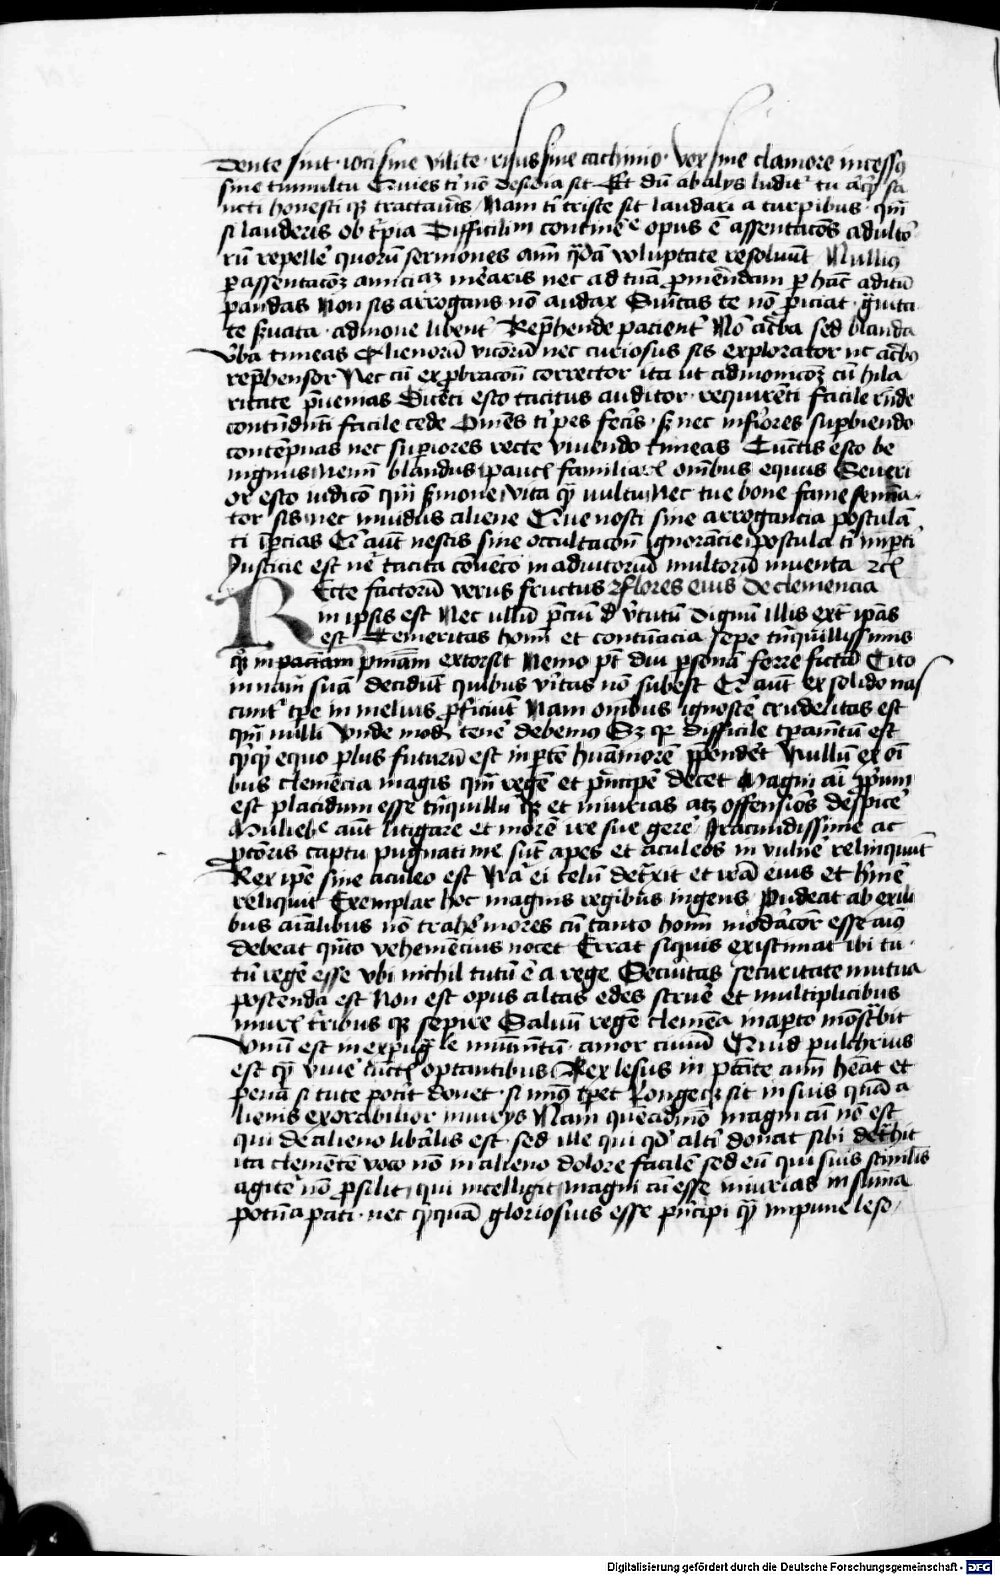 dente sint · ioci sine vilitate · risus sine cachinno · vox sine clamore incessus
sine tumultu Quies tibi non desidia sit Et dum ab alys luditur tu aliquid sa
ncti honestique tractaueris Nam tibi triste sit laudari a turpibus · quam
si lauderis ob turpia Difficilimum continentie opus est assentaciones adulato
rum repellere quorum sermones animum quadam voluptate resoluunt Nullius
per assentacionem amiciciam merearis nec ad tuam promerendam per hanc aditum
pandas Non sis arrogans non audax Summittas te non proiciat · grauita
te seruata · admone libenter Reprehende pacienter Non acerba sed blanda
verba timeas Alienorum viciorum nec curiosus sis explorator nec acerbus
reprehensor Nec cum exprobracione corrector ita ut admonicionem cum hila
ritate preuenias Dicenti esto tacitus auditor · requirenti facile responde
contendenti facile cede Omnes tibi pares feceris · si nec inferiores superbiendo
contempnas nec superiores recte viuendo timeas Cunctis esto be
nignus nemini blandus paucis familiaris omnibus equus Seueri
or esto iudicio quam sermone vita quam vultu Nec tue bone fame semina
tor sis nec inuidus aliene Que nosti sine arrogancia postulan
ti impercias Que autem nescis sine occultacione ignorancie postula tibi imperti
Iusticie est nature tacita conuencio in adiutorium multorum inuenta etc
Recte factorum verus fructus et flores eius De clemencia
in ipsis est Nec ullum precium est virtutum dignum illis extra ipsas
est Temeritas hominum et contumacia sepe tranquillissimis
quoque in pectoribus pacienciam extorsit Nemo potest diu personam ferre fictam Cito
in naturam suam decidunt quibus veritas non subest Que autem ex solido nas
cuntur tempore in melius proficiunt Nam omnibus ignoscere crudelitas est
quam nulli Unde modum tenere debemus Sed quia difficile temperamentum est
quicquid equo plus futurum est in partem humaniorem preponderet Nullum ex omni
bus clemencia magis quam regem et principem decet Magni animi proprium
est placidum esse tranquillumque et iniurias atque offensiones despicere
Muliebre autem litigare et morem ire sue gerere Iracundissime ac
pro corporis captu pugnatissime sunt apes et aculeos in vulnere relinquunt
Rex ipse sine aculeo est Natura ei telum detraxit et iram eius et inermem
reliquit Exemplar hoc magnis regibus ingens Pudeat ab exili
bus animalibus non trahere mores cum tanto hominum moderacior esse animus
debeat quanto vehemencius nocet Errat siquis existimat ibi tu
tum regem esse vbi nichil tutum est a rege Securitas securitate mutua
poscenda est Non est opus altas edes struere et multiplicibus
muris turribusque sepire Saluum regem clemencia in aperto monstrabit
Unum est inexpugnabile munimentum · amor ciuium Quid pulchrius
est quam viuere cunctis optantibus Rex lesus in primis animum habeat et
penam si tute poterit donet · si minus temperet Longeque sit in suis quam a
lienis exorabilior iniurys Nam quemadmodum magni animi non est
qui de alieno liberalis est · sed ille qui quod alteri donat sibi detrahit
ita clementem voco non in alieno dolore facilem sed eum qui suis stimulis
agitetur non prosilit qui intelligit magni animi esse iniurias in summa
potencia pati · nec quicquam gloriosius esse principi quam impune leso